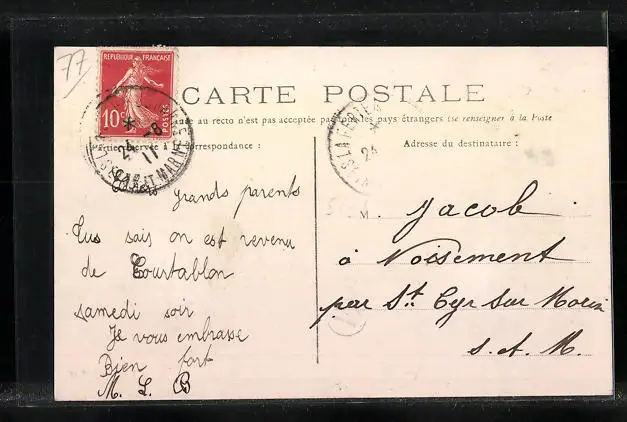 77
REPUBLIQUE FRANÇAISE
10c
POSTES
CARTE POSTALE
au recto n'est pas acceptée par tous les pays étrangers (se renseigner à la Poste
Partie réservée à la correspondance :
Adresse du destinataire :
24 -8
11
SEINE-ET-MARNE
24
Chers
grands parents
Tus sais on est revenu
de Coustablon
samedi soir
Je vous embrasse
Bien fort
M. L. B
M. Jacob
à Voisement
par St. Cyr sur Morin
S. et. M.